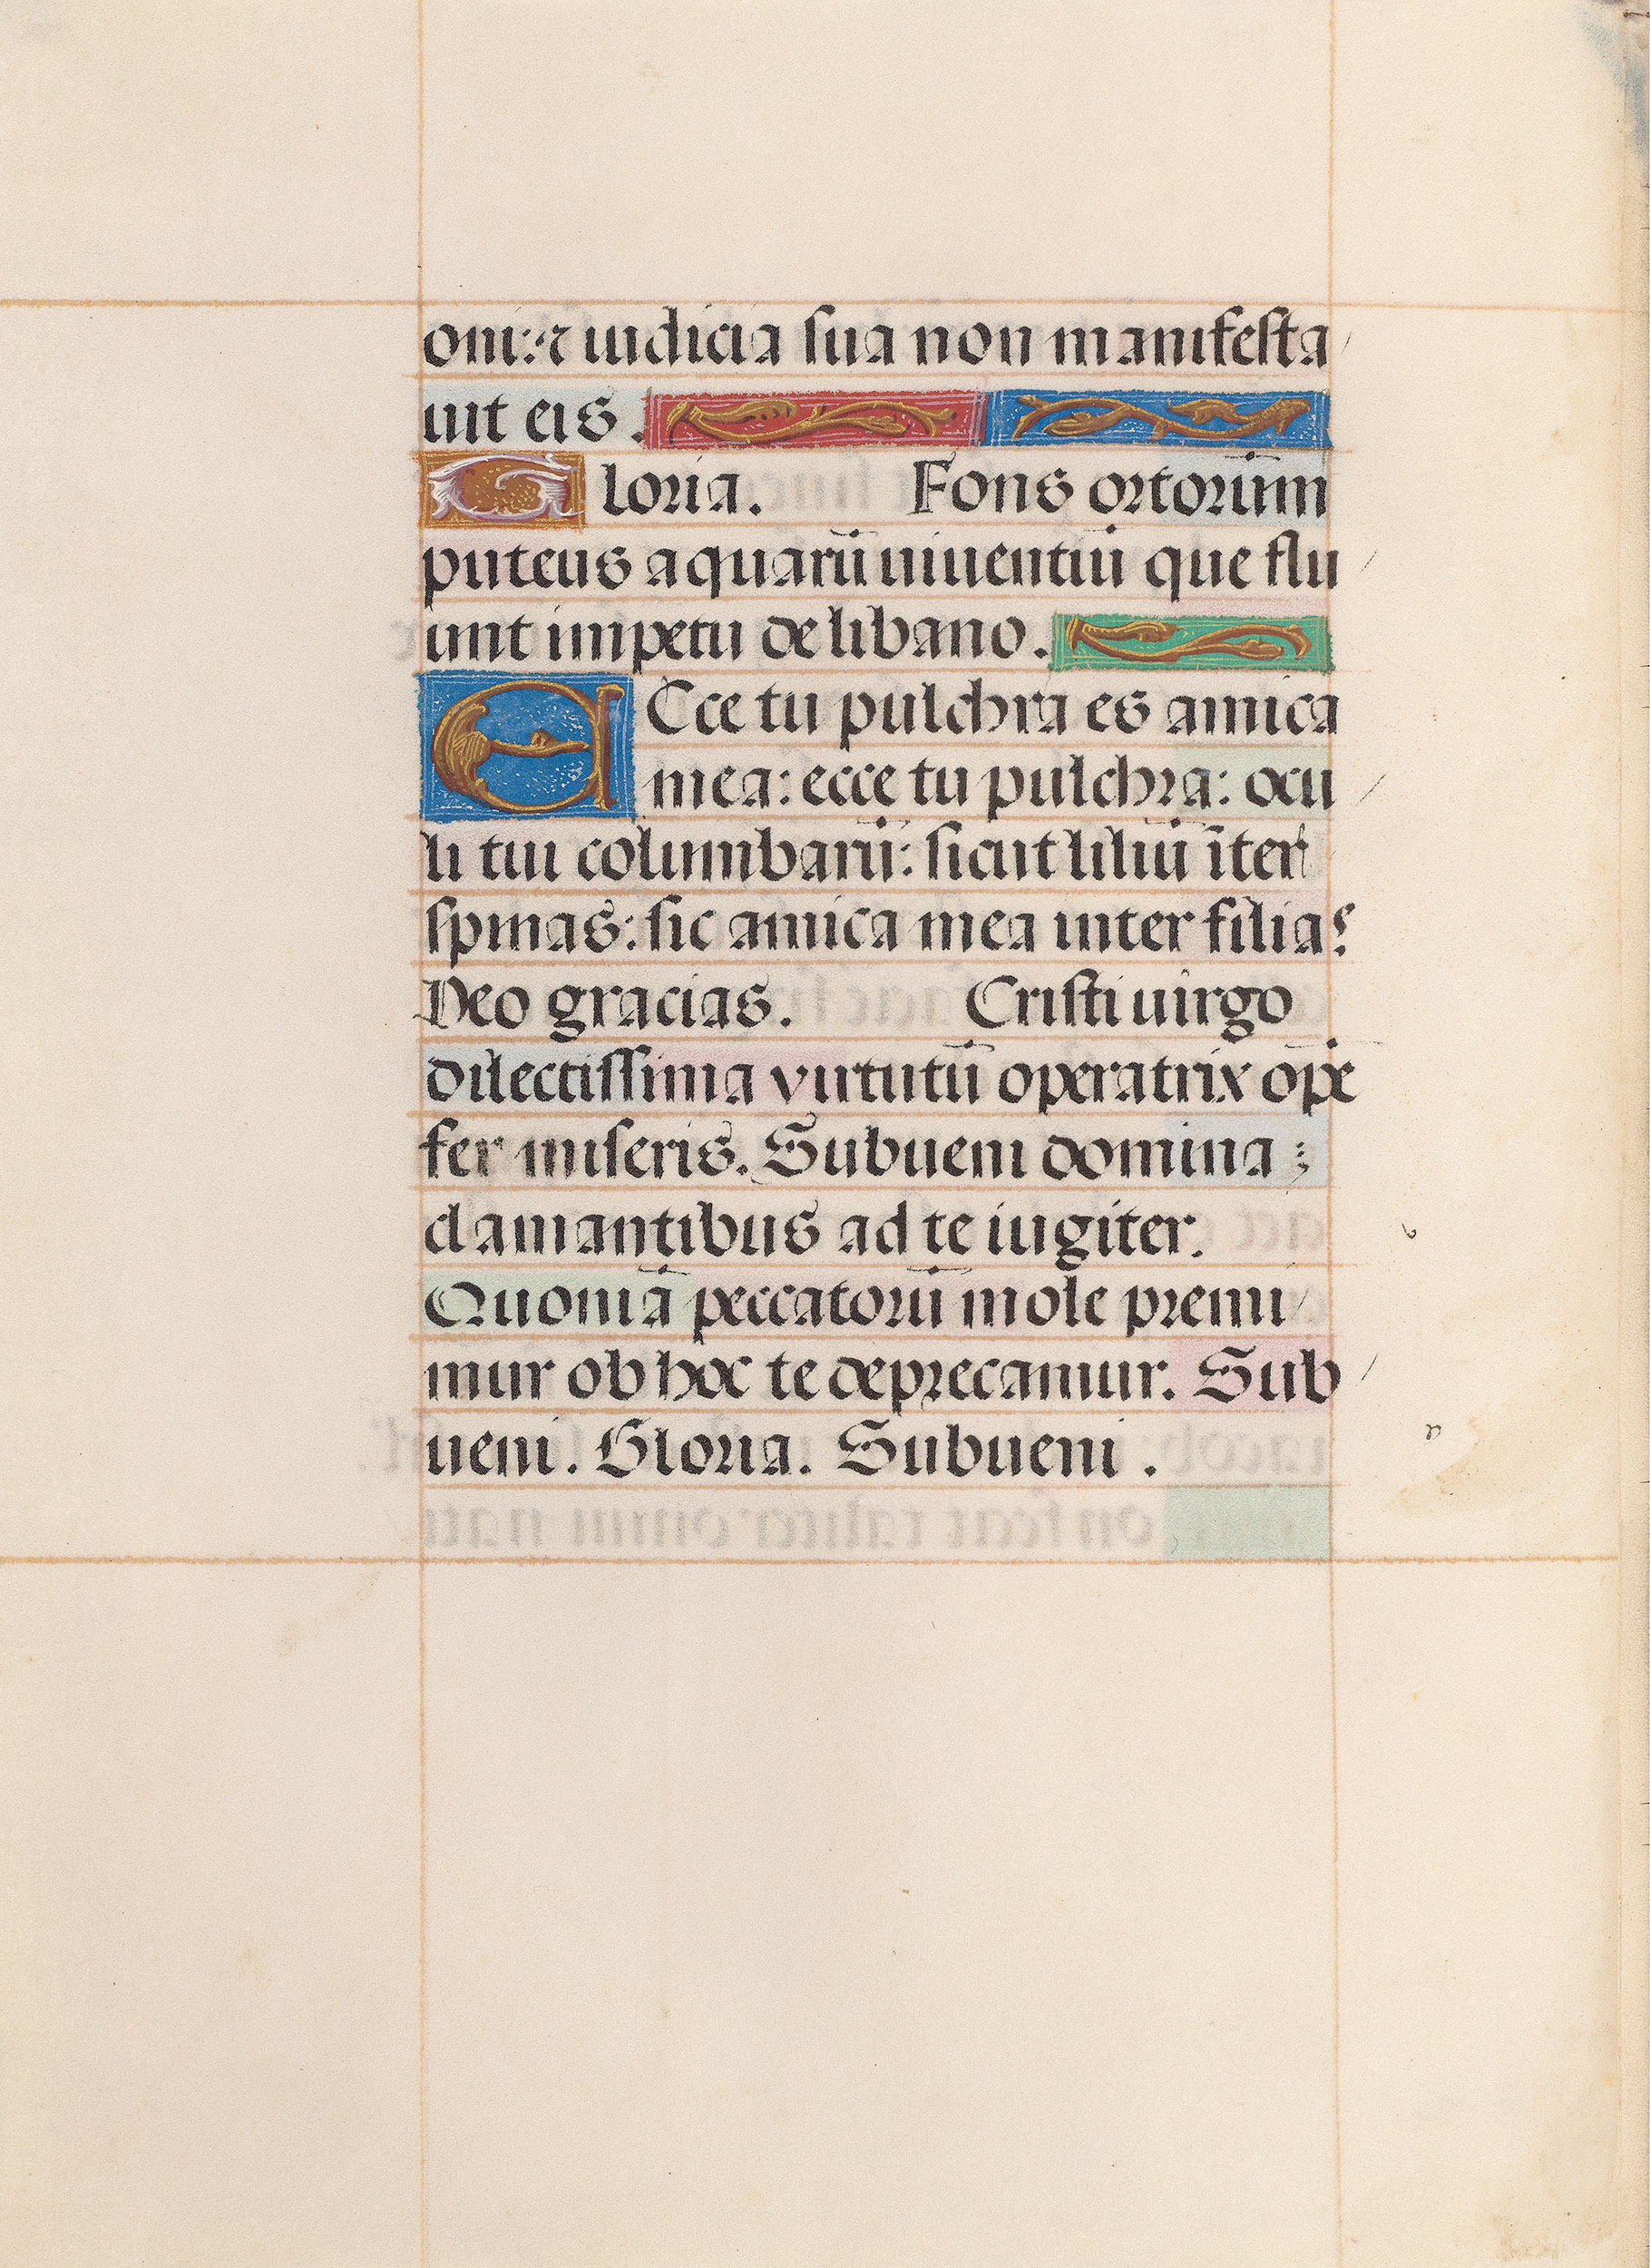 oni:⁊ iudicia sua non manifesta
uit eis.
Gloria. Fons ortoruım
puteus aquarū uiuentiū que flu
unt impetu de libano.
ECce tu pulchra es amica
mea: ecce tu pulchra: ocu
li tui columbarū: sicut liliū īter
spinas: sic amica mea inter filias
Deo gracias. Cristi uirgo
dilectissima virtutū operatrix opē
fer miseris. Subueni domina:
clamantibus ad te iugiter.
Quoniā peccatorū mole premi
mur ob hoc te deprecamur. Sub
ueni. Gloria. Subueni.